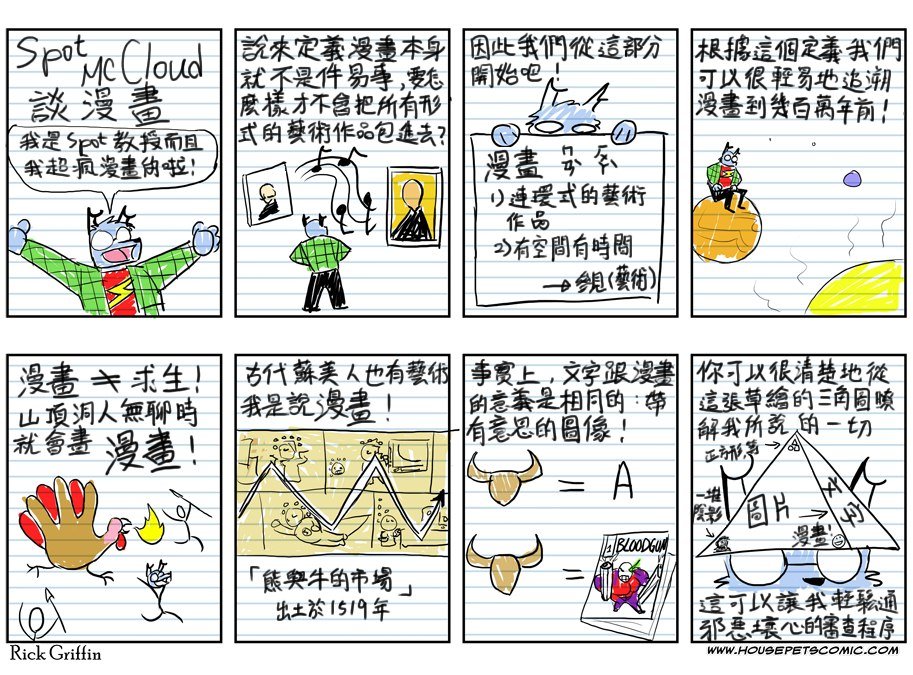 Spot
McCloud
談漫畫
我是Spot教授而且
我超瘋漫畫的啦!
說來定義漫畫本身
就不是件易事,要怎
麼樣才不會把所有形
式的藝術作品包進去?
因此我們從這部分
開始吧!
漫畫 ㄇㄢˋ ㄏㄨㄚˋ
1)連環式的藝術
作品
2)有空間有時間
→參見(藝術)
根據這個定義我們
可以很輕易地追溯
漫畫到幾百萬年前!
漫畫≠求生!
山頂洞人無聊時
就會畫漫畫!
古代蘇美人也有藝術
我是說漫畫!
「熊與牛的市場」
出土於1519年
事實上,文字跟漫畫
的意義是相同的:帶
有意思的圖像!
= A
=
1 BLOODGUM
你可以很清楚地從
這張草繪的三角圖瞭
解我所說的一切
正方形,等
一堆
陰影
圖片→文字
漫畫!
這可以讓我輕鬆通
邪惡壞心的審查程序
Rick Griffin
WWW.HOUSEPETSCOMIC.COM